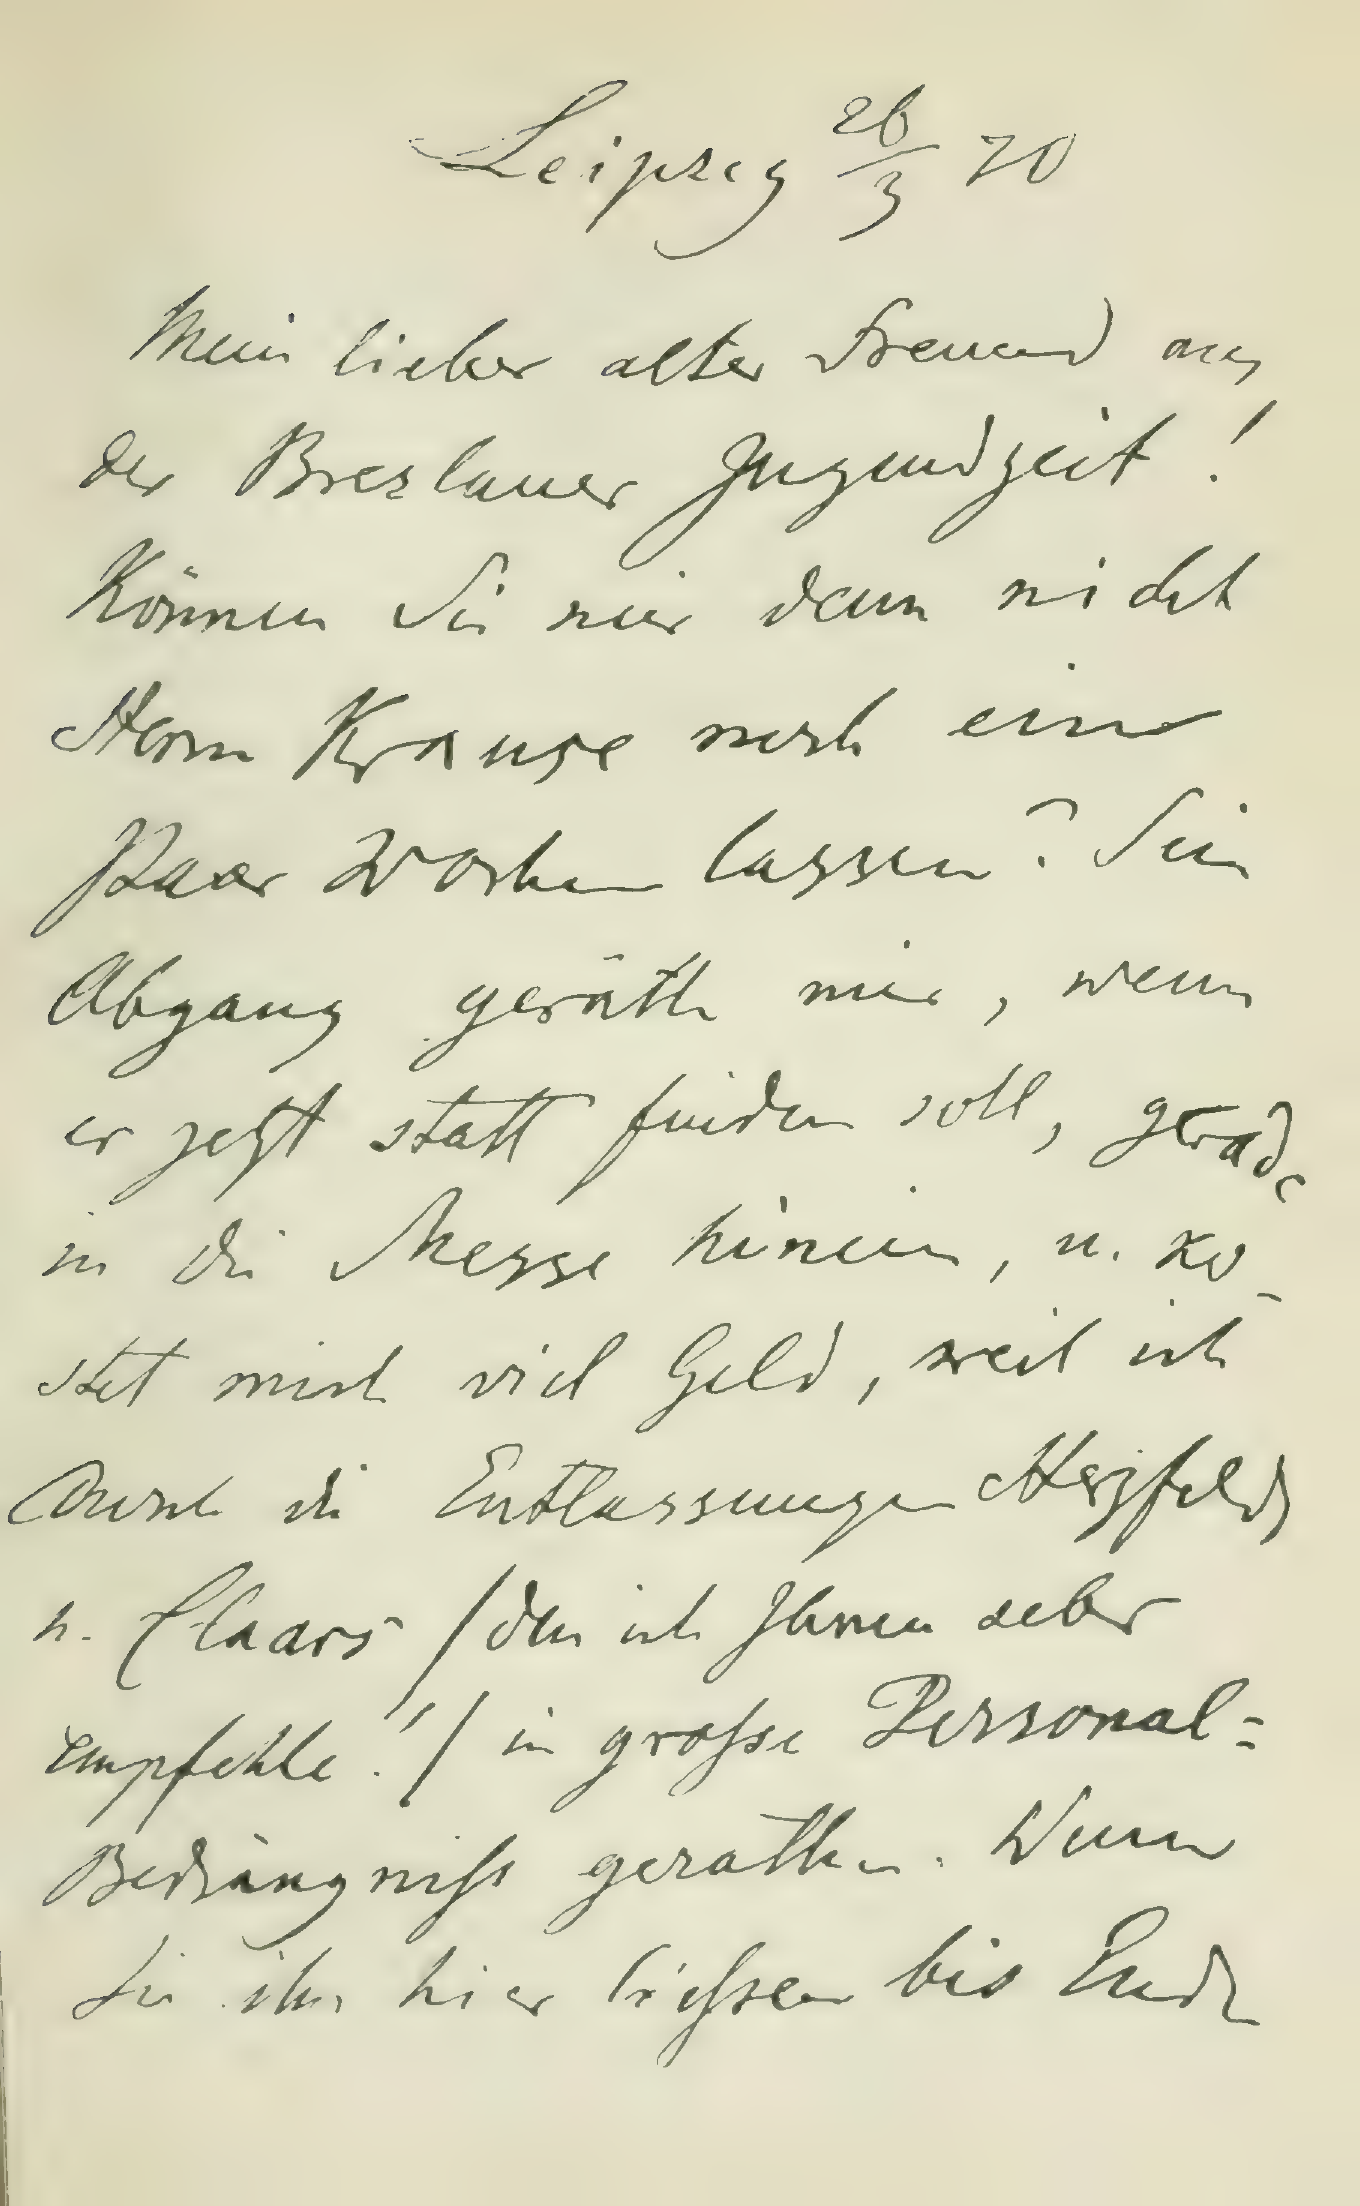 Leipzig 26/3 70
Mein lieber alter Freund aus
der Breslauer Jugendzeit!
Können Sie mir denn nicht
Herrn Krause noch ein
Paar Wochen lassen? Sein
Abgang geräth mir, wenn
er jetzt statt finden soll, gerade
in die Messe hinein, u. ko-
stet mich viel Geld, weil ich
durch die Entlassungen Herzfelds
u. Claars /den ich Ihnen seber
empfehle!/ in große Personal=
Bedrängniß gerathen. Wenn
Sie ihn hier ließen bis Ende